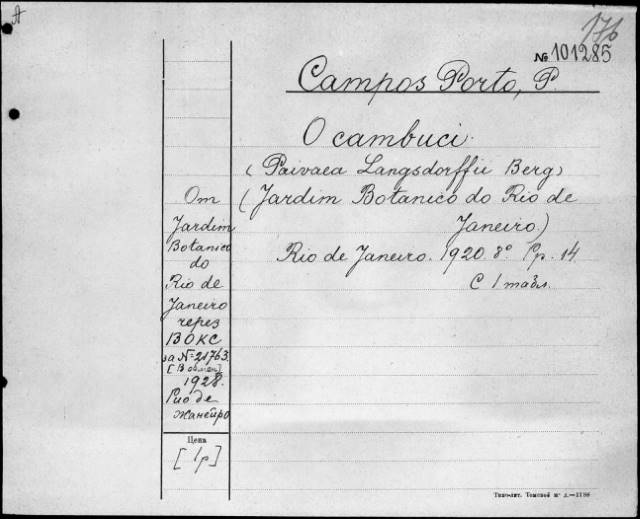 A
176
№ 101285
Campos Porto, P.
O cambuci.
(Paivaea Langsdorffii Berg)
(Jardim Botanico do Rio de
Janeiro.)
Rio de Janeiro. 1920. 8° Pp. 14.
С 1 табл.
От
Jardim
Botanico
do
Rio de
Janeiro
через
ВОКС
за № 21763.
[В обмен]
1928.
Рио де
Жанейро
Цена
[1 р]
Типо-лит. Томской ж. д.—1186